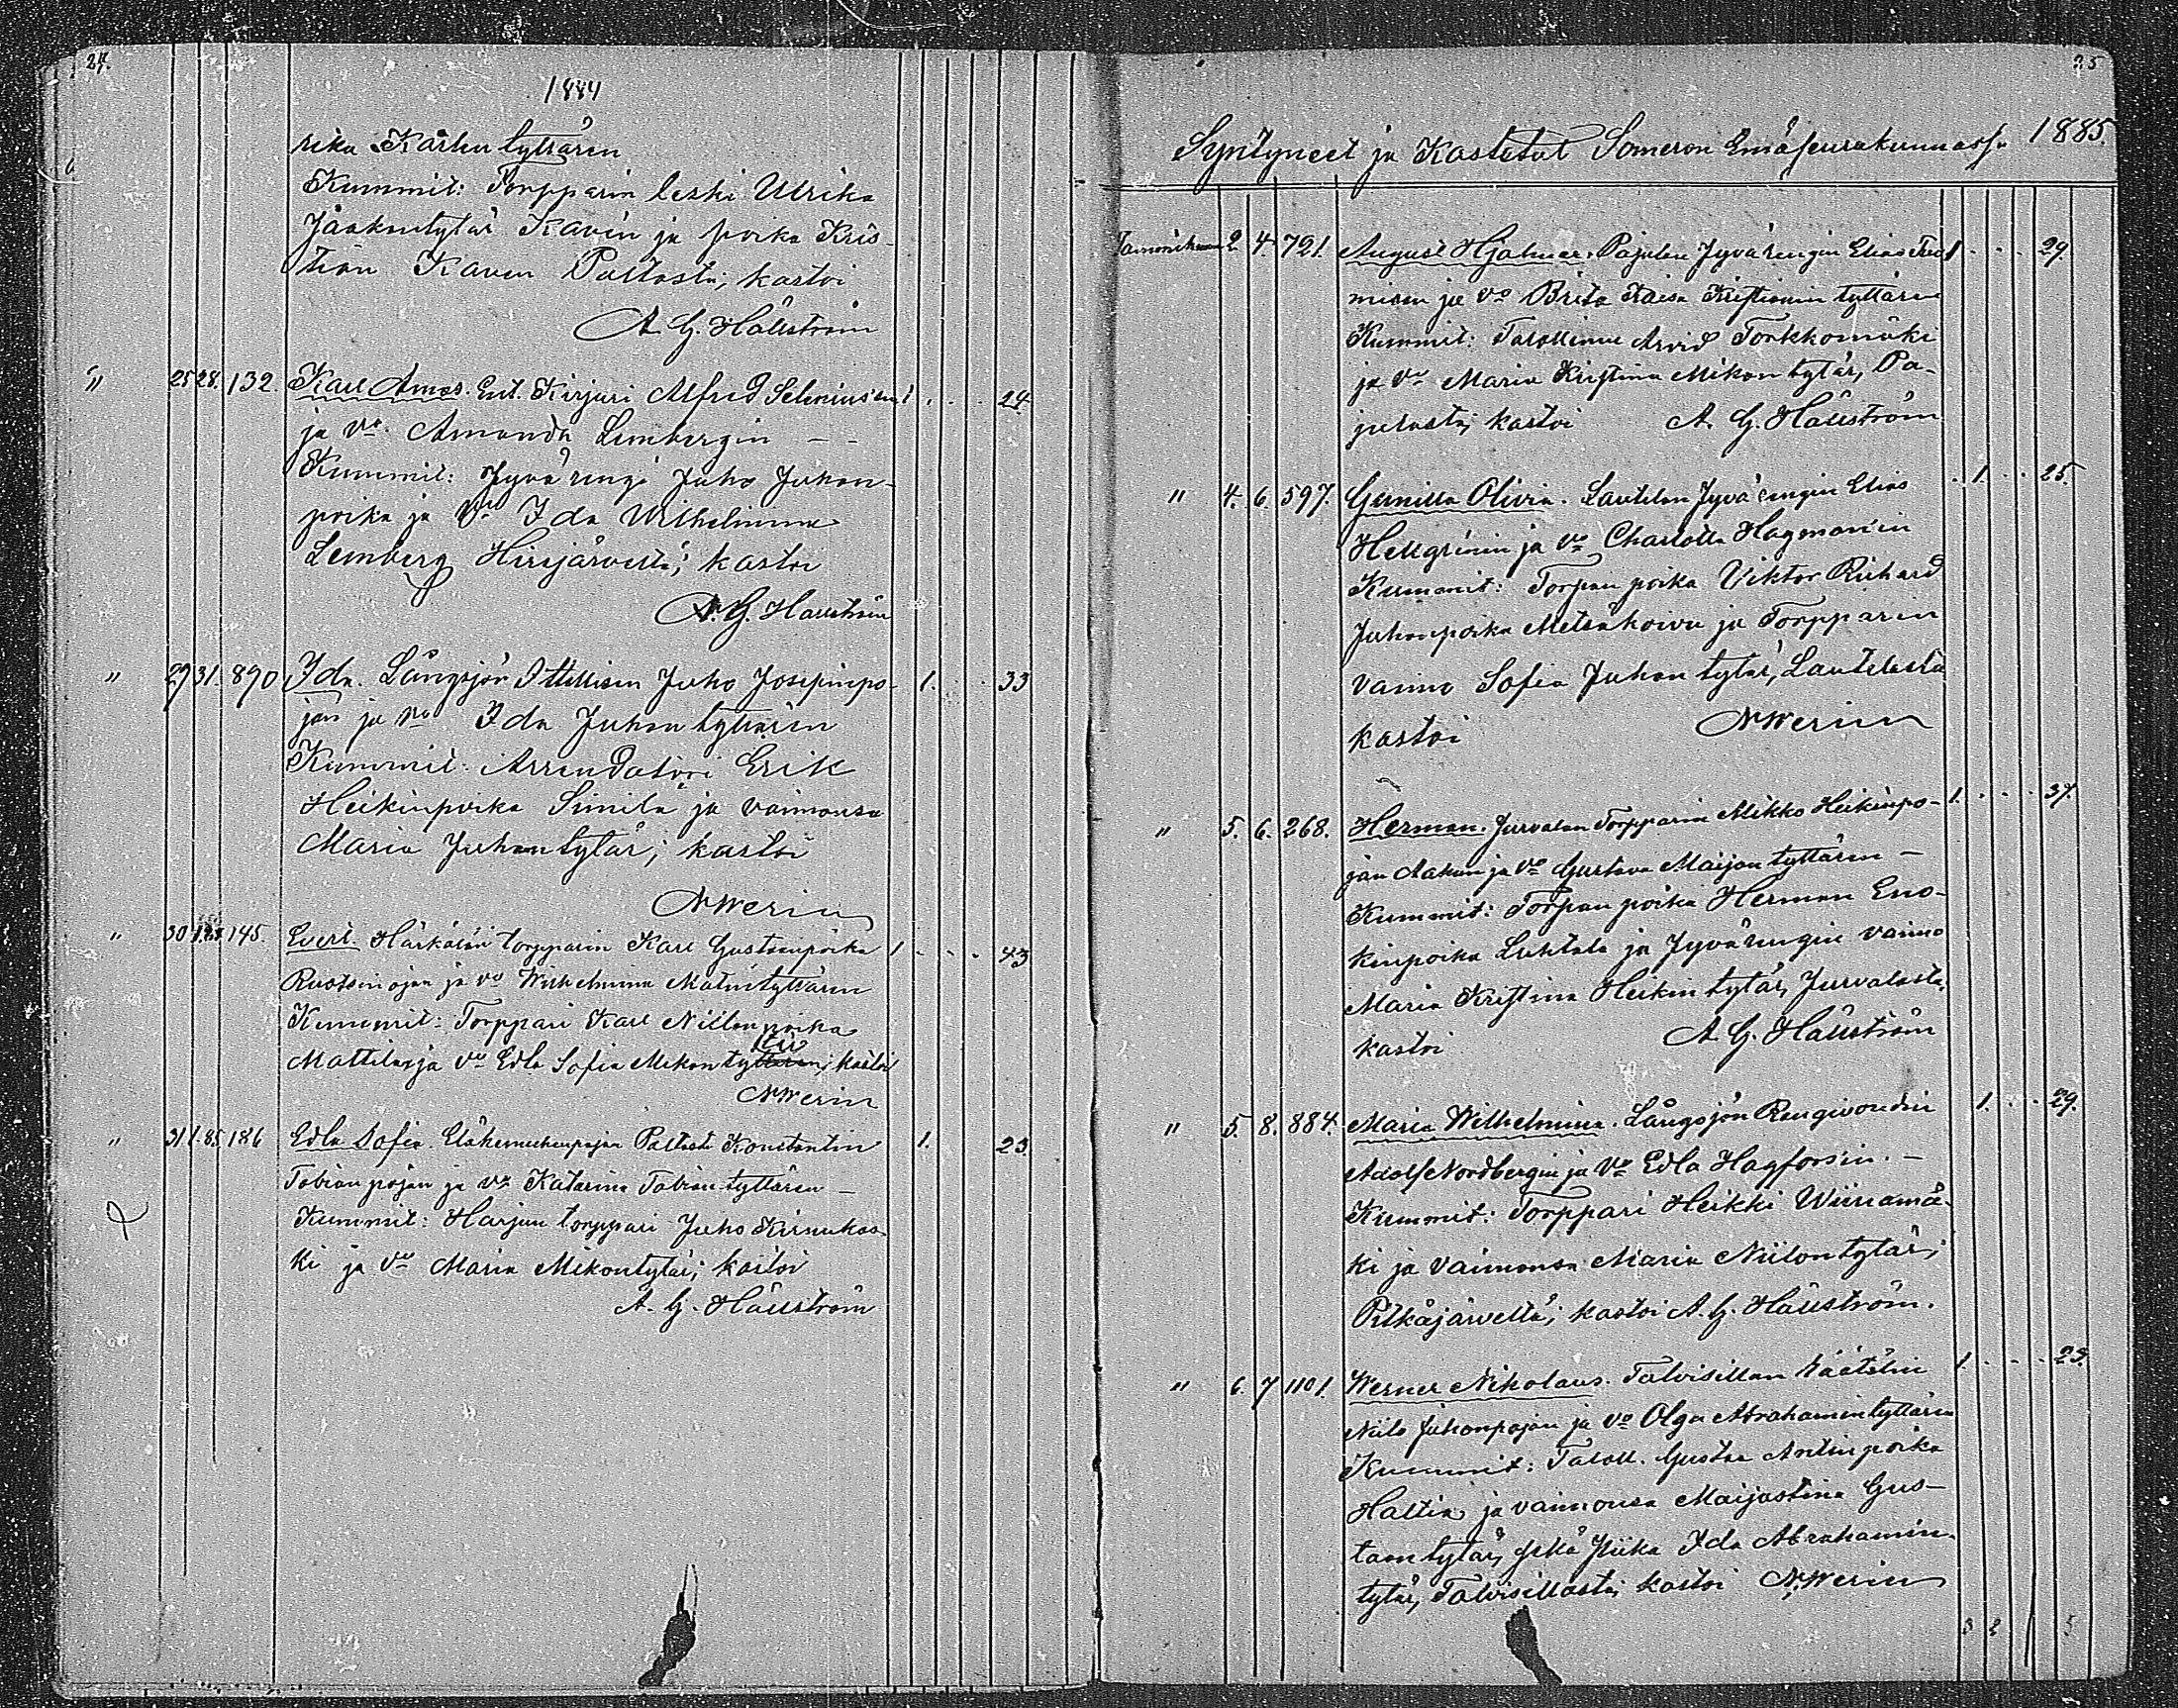 24.
1884
rika Karlen tyttären
Kummit: Torpparin leski Ulrika
Jaakontytär Kavén ja poika Kris-
tian Kaven Paltasta; kastoi
A. G. Hällström
" 25 28. 132. Karl Amos. Ent. Kirjuri Alfred Selenius'en 1 . . . 24
ja vo. Amanda Lembergin - -
Kummit: Jyvä rengi Juho Juhon-
poika ja vo Ida Wilhelmina
Lemberg Hirsjärveltä; kastoi
A. G. Hällström
" 29 31. 890 Ida. Långsjön Ittellisen Juho Josepinpo- 1. . . 33
jan ja vo Ida Juhon tyttären
Kummit: Arrendatori Erik
Heikinpoika Simila ja vaimonsa
Maria Juhontytär; kastoi
N Werin
" 30 145. Evert Härkälän torpparin Karl Gustaanpoika 1 . . . 43
Ruotsinojan ja vo Wilhelmina Matintyttären
Kummit: Torppari Karl Niilonpoika
Mattila ja vo Edla Sofia Mikontytär; kastoi
N Werin
" 31 1.85. 186 Edla Sofia. Paltasta Konstantin 1. . 23
Tobian pojan ja vo Katarina Tobian tyttären -
Kummit: Harjun torppari Juho Kirsukas-
ki ja vo Maria Mikontytär; kastoi
A. G. Hällström
25
Syntyneet ja Kastetut Someron Emäseurakunnassa 1885.
Tammikuun 2. 4. 721. August Hjalmar. Pajulan Jyvä rengin Elias 1 . . . 29.
ja vo Brita Kaisa Kristianin tyttären
Kummit: Talollinen Arvid Torkkomäki
ja vo Maria Kristina Mikon tytär, Pa-
julasta; kastoi A. G. Hällström
" 4. 6. 597. Gunilla Olivia. Lautelan Jyvä rengin Elias . 1. . . 25.
Hellgrénin ja vo Charlotta Hagman'in
Kummit: Torpan poika Viktor Richard
Juhonpoika Metsäkoivu ja Torpparin
vaimo Sofia Juhon tytär, Lautelasta
kastoi N Werin
" 5. 6. 268. Herman. Jurvalan Torpparin Mikko Heikinpo- 1. . . . 37.
jan Aakun ja vo Gustava Maijan tyttären -
Kummit: Torpan poika Herman Eno-
kinpoika Luhtala ja Jyvä rengin vaimo
Maria Kristina Heikin tytär, Jurvalasta.
kastoi A. G. Hällström
" 5. 8. 884. Maria Wilhelmina. Långsjön Rengivoudin 1. . . 29.
Adolf Nordbergin ja vo Edla Hagforsin. -
Kummit: Torppari Heikki Wiiriamä-
ki ja vaimonsa Maria Niilon tytär;
Pitkäjärveltä; kastoi A. G. Hällström.
" 6. 7 1101. Werner Nikolaus. Talvisillan Räätälin 1. . . . 23.
Niilo Juhonpojan ja vo Olga Abrahamintyttären
Kummit: Taloll. Gustaa Antinpoika
Haltia ja vaimonsa Maijastina Gus-
taan tytär, sekä Piika Ida Abrahamin-
tytär, Talvisillasta; kastoi N. Werin